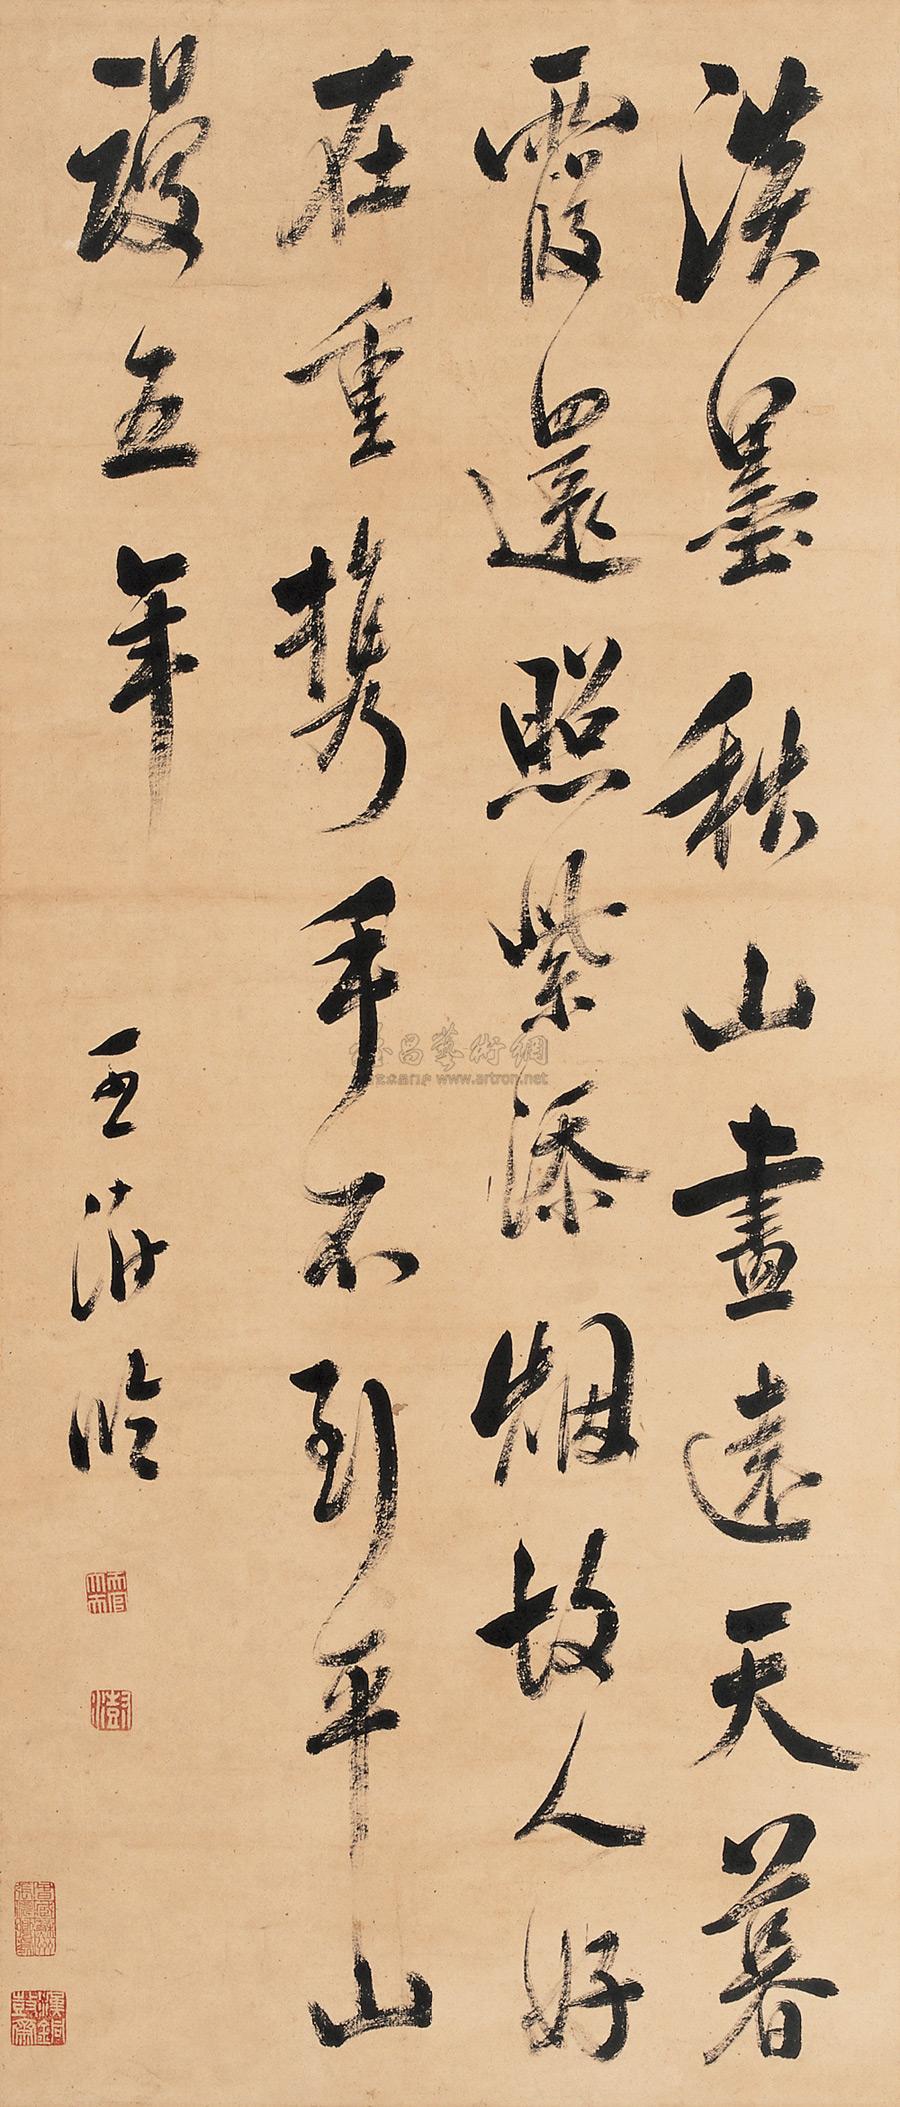 淡墨秋山畫遠天暮
霞還照紫添烟故人好
在重携手不到平山
謾五年
王澍臨
澍
雅昌藝術網
www.artron.net